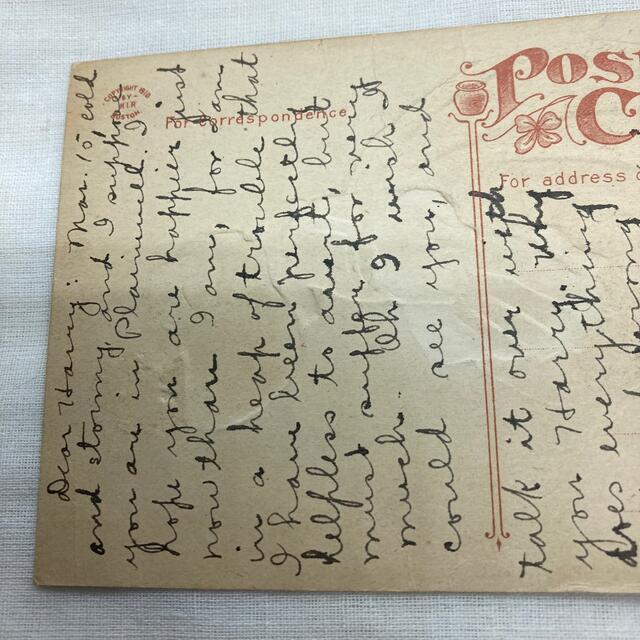 Dear Harry: Mar. 15 cold
and stormy, and I suppose
you are in Plainwell. I
hope you are happier just
now than I am, for I am
in a heap of trouble that
I have been perfectly
helpless to avert, but
must suffer for very
much. Oh I wish I
could see you, and
talk it over with
you Harry. Why
does everything
COPYRIGHT 1910
BY
H.I.R.
BOSTON
For Correspondence
POS
C
For address